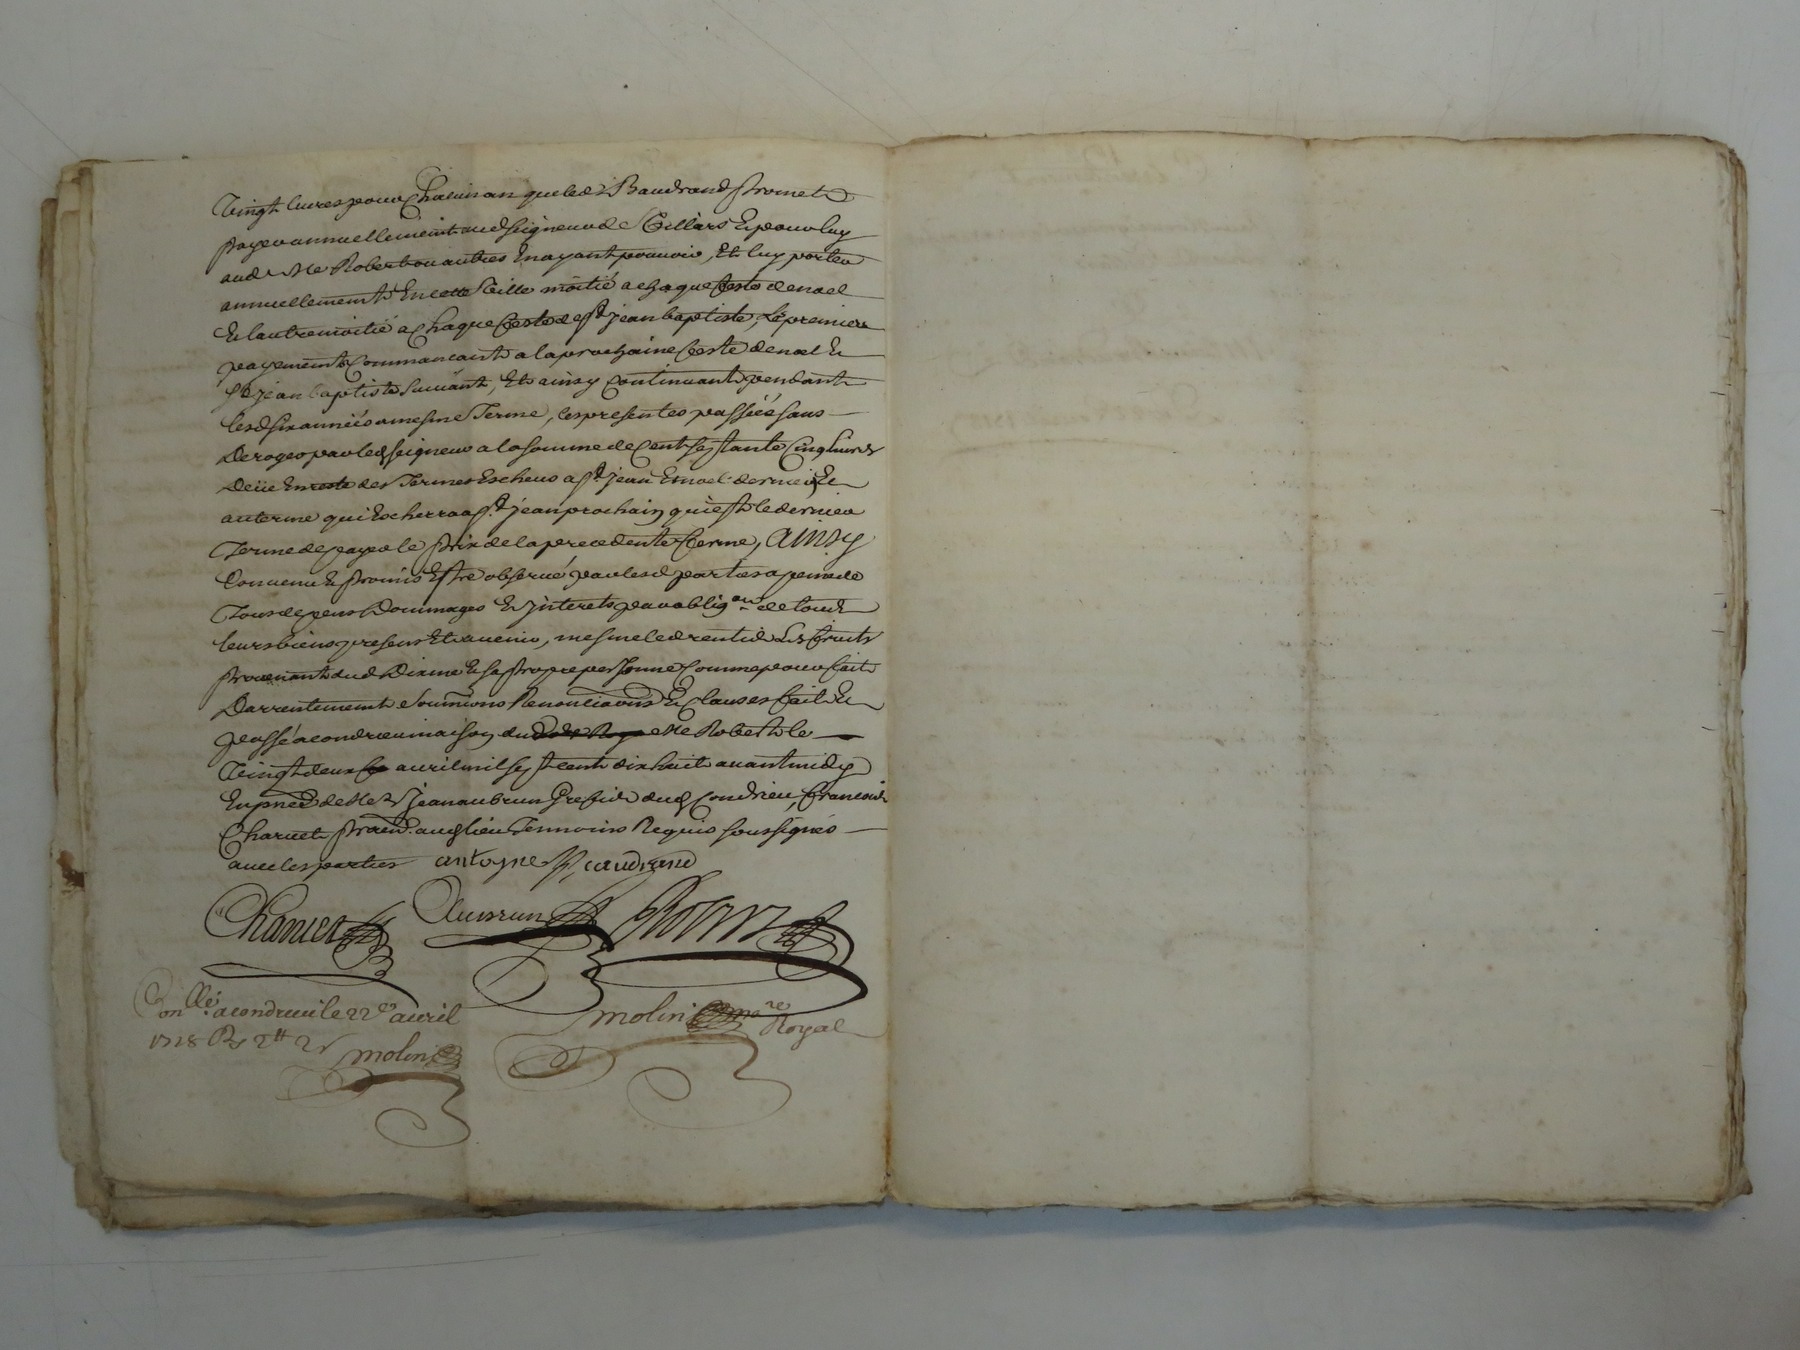 Vingt livres pour Chacun an que led Sr Baudrand promet
payer annuellement aud seigneur de Villars Et pour luy
aud Me Robert ou autres En ayant pouvoir, Et luy porter
annuellement En cette Ville moitié a chaque feste de noel
Et lautre moitié a Chaque feste de st jean baptiste, Le premier
payement Commancant a la prochaine feste de noel Et
St jean baptiste suivant, Et ainsy Continuant pendant
lesd six années a mesme Terme, les presentes passéé sans
Deroger par led seigneur a la somme de Cent septante Cinq livres
Deüe En reste des Termes Escheus a st jean Et noel dernier Et
au terme qui Escherra a st jean prochain qui est le dernier
Terme de payer le prix de la precedente ferme, ainsy
Convenu Et promis Estre observé par lesd parties a peine de
Tous depens Dommages Et jnterets par obligaon de tous
leurs biens presens Et avenir, mesme led rentier Les fruits
Provenants dud Dixme Et sa propre personne Comme pour fait
Darrentement soumions Renonciaons Et Clauses fait Et
passé a condrieu maison dud Me Robert le
Vingt deux avril mil sept cent dix huit avant midy
En pnce de Me jean aubrun Greffier dud Condrieu, francois
Charvet pratn. aud lieu Temoins Requis soussignés
avec les parties antoyne baudrand
Charvet Aubrun Robert
Conllé a condrieu le 22e avril molin nore Royal
1718 Rs 2tt 2s
molin